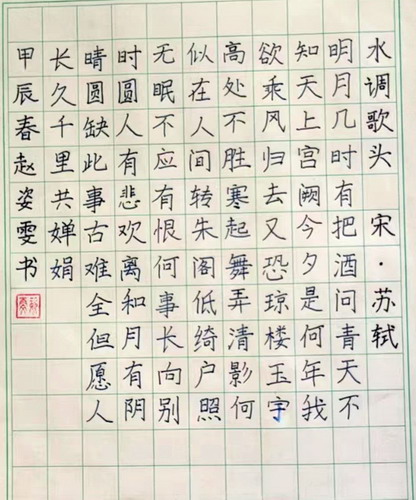 水调歌头 宋·苏轼
明月几时有把酒问青天不
知天上宫阙今夕是何年我
欲乘风归去又恐琼楼玉宇
高处不胜寒起舞弄清影何
似在人间转朱阁低绮户照
无眠不应有恨何事长向别
时圆人有悲欢离和月有阴
晴圆缺此事古难全但愿人
长久千里共婵娟
甲辰春赵姿雯书